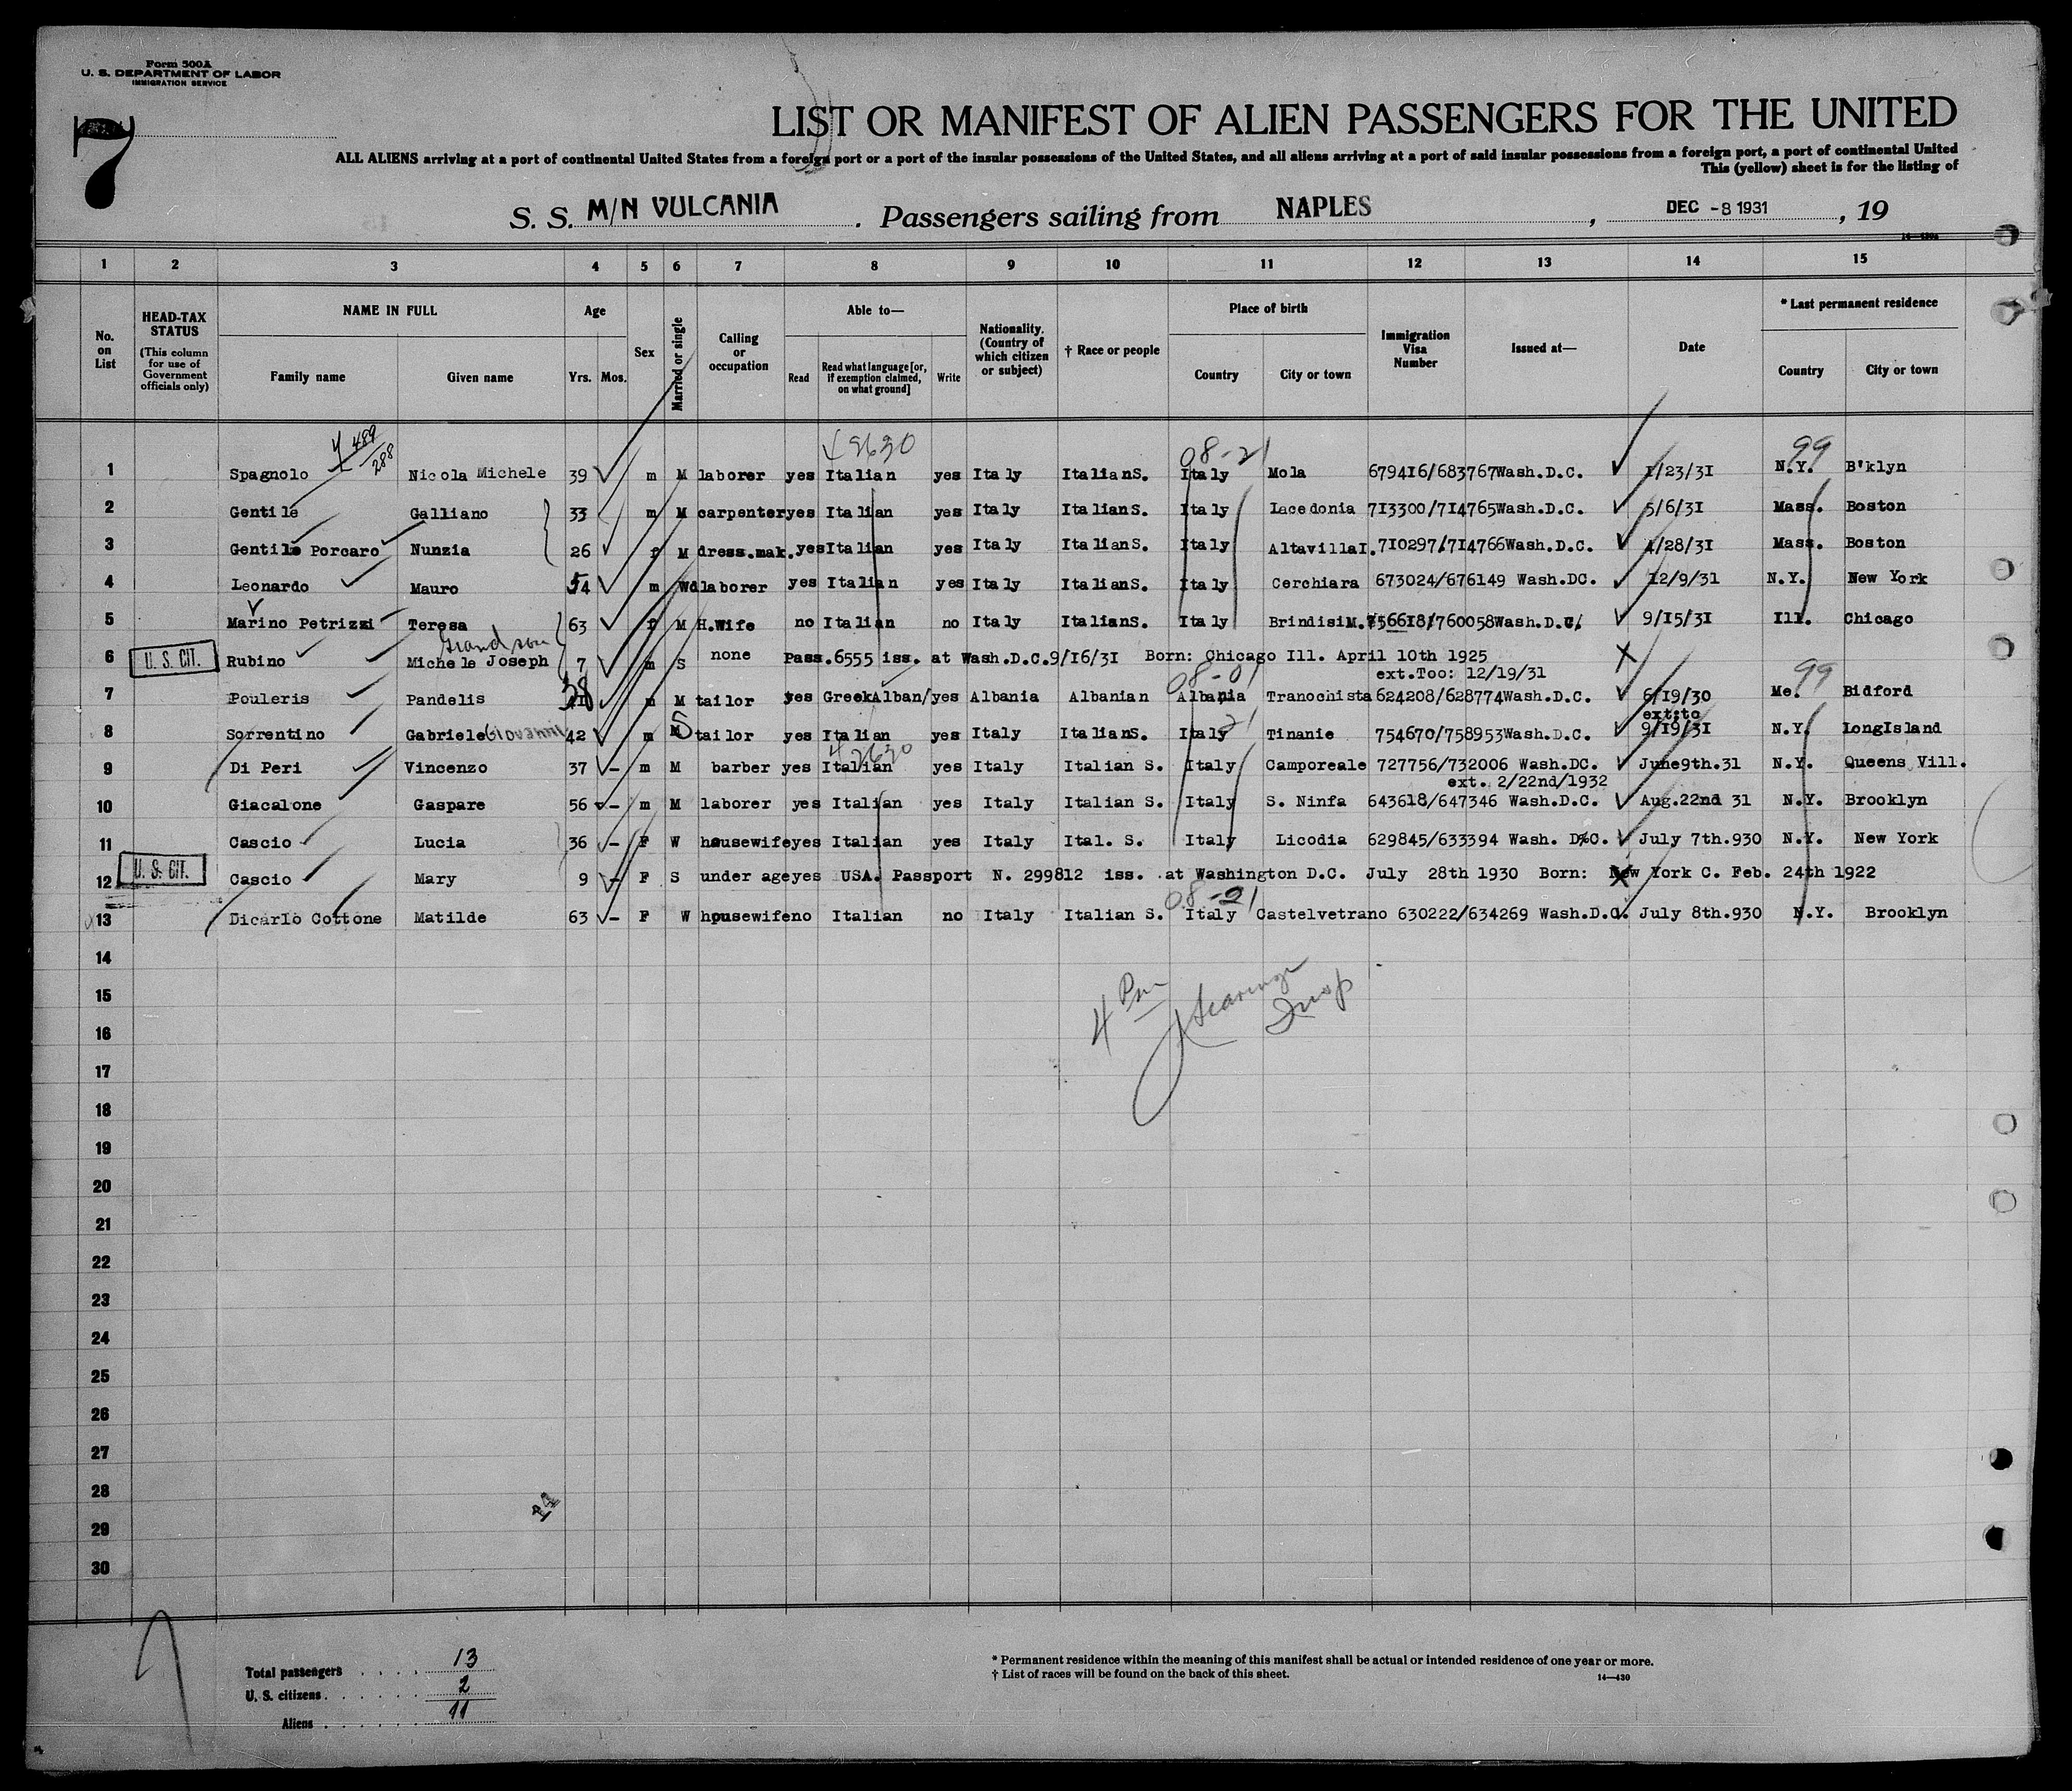 Form 500A
U. S. DEPARTMENT OF LABOR
IMMIGRATION SERVICE
7
LIST OR MANIFEST OF ALIEN PASSENGERS FOR THE UNITED
ALL ALIENS arriving at a port of continental United States from a foreign port or a port of the insular possessions of the United States, and all aliens arriving at a port of said insular possessions from a foreign port, a port of continental United
This (yellow) sheet is for the listing of
S. S. M/N VULCANIA . Passengers sailing from NAPLES , DEC -8 1931 , 19
1 2 3 4 5 6 7 8 9 10 11 12 13 14 15
No. on List
HEAD-TAX STATUS
(This column for use of Government officials only)
NAME IN FULL
Family name Given name
Age
Yrs. Mos.
Sex
Married or single
Calling or occupation
Able to—
Read Read what language [or, if exemption claimed, on what ground] Write
Nationality. (Country of which citizen or subject)
† Race or people
Place of birth
Country City or town
Immigration Visa Number
Issued at—
Date
* Last permanent residence
Country City or town
4 489/288 08-21 99
1 Spagnolo Nicola Michele 39 m M laborer yes Italian yes Italy ItalianS. Italy Mola 679416/683767Wash.D.C. 1/23/31 N.Y. B'klyn
2 Gentile Galliano 33 m M carpenteryes Italian yes Italy ItalianS. Italy Lacedonia 713300/714765Wash.D.C. 5/6/31 Mass. Boston
3 Gentile Porcaro Nunzia 26 f M dress.mak.yesItalian yes Italy ItalianS. Italy AltavillaI.710297/714766Wash.D.C. 4/28/31 Mass. Boston
4 Leonardo Mauro 54 m Wdlaborer yes Italian yes Italy ItalianS. Italy Cerchiara 673024/676149 Wash.DC. 12/9/31 N.Y. New York
5 Marino Petrizzi Teresa 63 f M H.Wife no Italian no Italy ItalianS. Italy BrindisiM.756618/760058Wash.D.C. 9/15/31 Ill. Chicago
Grand son
U. S. CIT.
6 Rubino Michele Joseph 7 m S none Pass.6555 iss. at Wash.D.C.9/16/31 Born: Chicago Ill. April 10th 1925
08-01 ext.Too: 12/19/31 99
7 Pouleris Pandelis 38 m M tailor yes GreekAlban/yes Albania Albanian Albania Tranochista 624208/628774Wash.D.C. 6/19/30 Me. Bidford
ext:to
8 Sorrentino Gabriele Giovanni 42 m S tailor yes Italian yes Italy ItalianS. Italy Tinanie 754670/758953Wash.D.C. 9/19/31 N.Y. LongIsland
9 Di Peri Vincenzo 37 - m M barber yes Italian yes Italy Italian S. Italy Camporeale 727756/732006 Wash.DC. June9th.31 N.Y. Queens Vill.
ext. 2/22nd/1932
10 Giacalone Gaspare 56 - m M laborer yes Italian yes Italy Italian S. Italy S. Ninfa 643618/647346 Wash.D.C. Aug.22nd 31 N.Y. Brooklyn
11 Cascio Lucia 36 - F W housewifeyes Italian yes Italy Ital. S. Italy Licodia 629845/633394 Wash. D.C. July 7th.930 N.Y. New York
U. S. CIT.
12 Cascio Mary 9 - F S under ageyes USA. Passport N. 299812 iss. at Washington D.C. July 28th 1930 Born: New York C. Feb. 24th 1922
08-21
13 Dicarlo Cottone Matilde 63 - F W housewifeno Italian no Italy Italian S. Italy Castelvetrano 630222/634269 Wash.D.C. July 8th.930 N.Y. Brooklyn
14
15
4 Pm Hearings Insp
16
17
18
19
20
21
22
23
24
25
26
27
28
29
30
Total passengers . . . . 13
U. S. citizens . . . . . . 2
Aliens . . . . . . 11
* Permanent residence within the meaning of this manifest shall be actual or intended residence of one year or more.
† List of races will be found on the back of this sheet. 14—430